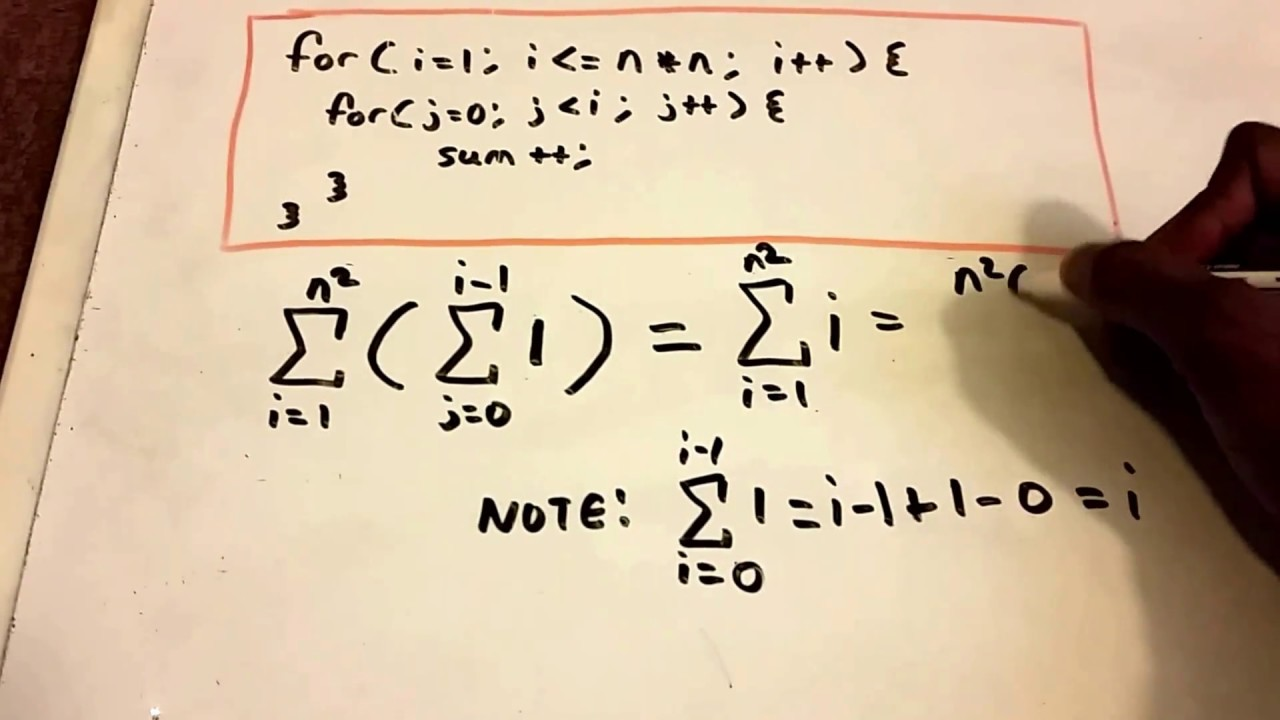 for(i=1; i<=n*n; i++){
for(j=0; j<i; j++){
sum++;
}
}
n²∑i=1 (i-1∑j=0 1) = n²∑i=1 i = n²(
NOTE: i-1∑i=0 1 = i-1+1-0 = i